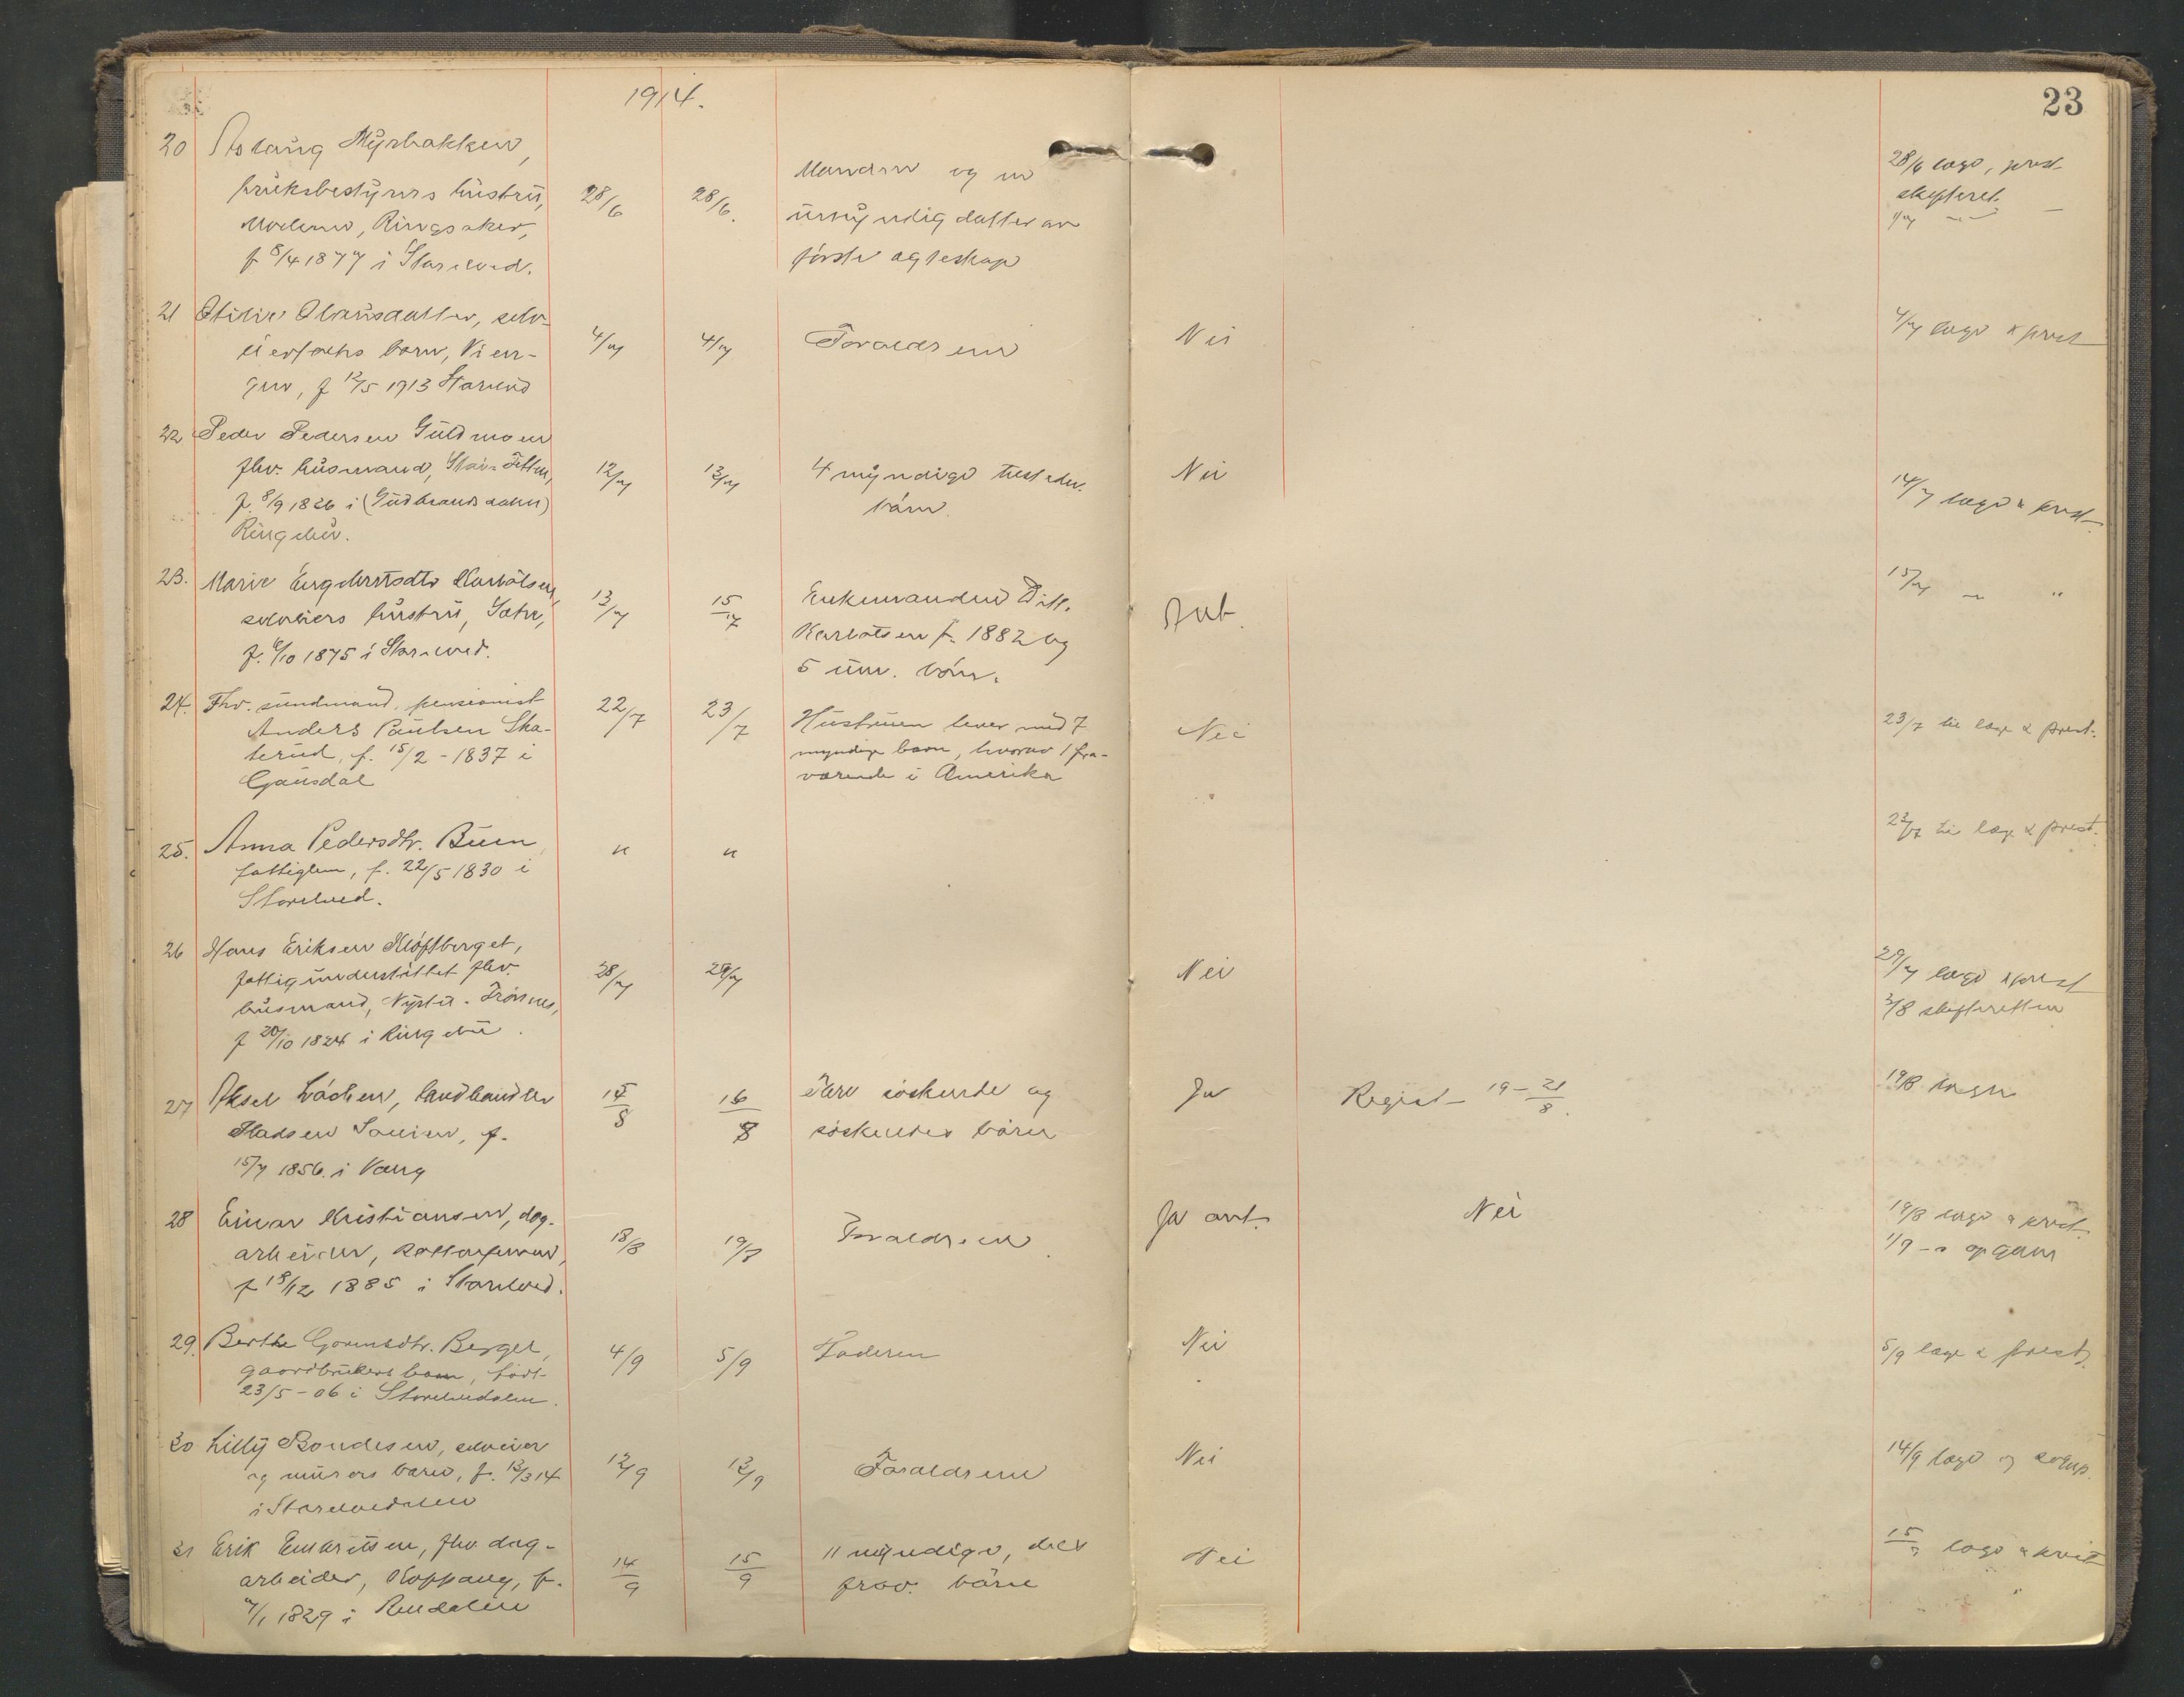 1914.
23
20 Aslaug Myrbakken,
bruksbestyrers hustru,
Moelven, Ringsaker,
f 8/4 1877 i Storelved.
28/6
28/6.
Manden og en
umyndig datter av
første egteskap
28/6 læge, prest
skifteret.
1/7
21 Otilie Olausdatter, selv-
eierfolks barn,
f 12/5 1913 Storelved
4/7
4/7
Forældrene
Nei
4/7 læge & prest
22 Peder Pedersen Guldmoen
fhv. husmand,
f. 8/9 1826 i (Gudbrandsdalen)
Ringebu.
12/7
13/7
4 myndige tilstedev.
børn.
Nei
14/7 læge & prest
23. Marie Engebretsdtr Karlotsen,
selveiers hustru, Sætre,
f. 6/10 1875 i Storelved.
13/7
15/7
Enkemanden
Karlotsen f. 1882 og
5 um. børn.
Ant.
15/7 — "
24. Fhv. sundmand, pensionist
Anders Paulsen Ska-
terud, f. 15/2 - 1837 i
Gausdal
22/7
23/7
Hustruen lever med 7
myndige barn, hvorav 1 fra-
værende i Amerika
Nei
23/7 til læge & prest.
25. Anna Pedersdtr. Buen,
fattiglem, f. 22/5 1830 i
Storelved.
"
"
"
23/7 til læge & prest.
26 Hans Eriksen Kløftberget,
fattigunderstøttet fhv.
husmand, Nystu - Trønnes,
f 20/10 1824 i Ringebu.
28/7
29/7
Nei
29/7 læge & prest
3/8 skifteretten
27 Aksel Løchen, landhandler
f.
15/7 1856. i Vang
15/8
16/8
Flere søskende og
søskendes børn
Ja
Regist - 19 - 21/8.
19/8
28 Einar Kristiansen, dag-
arbeider,
f 18/12 1885 i Storelved.
18/8
19/8
Forældrene.
Ja ant.
Nei
19/8 læge & prest.
1/9
29. Berthe Gormsdtr. Berget,
gaardbrukers barn, født
23/5 - 06 i Storelvedalen.
4/9
5/9
Faderen
Nei
5/9 læge & prest.
30 Lilly Bondesen, selveier
og murers barn, f. 13/3 14
i Storelvedalen
12/9
13/9
Forældrene
Nei
14/9 læge og sognp.
31 Erik Embretsen, fhv. dag-
arbeider, Koppang, f.
7/1 1829 i Rendalen
14/9
15/9
11 myndige, dels
frav. børn
Nei
15/9 læge & prest
"